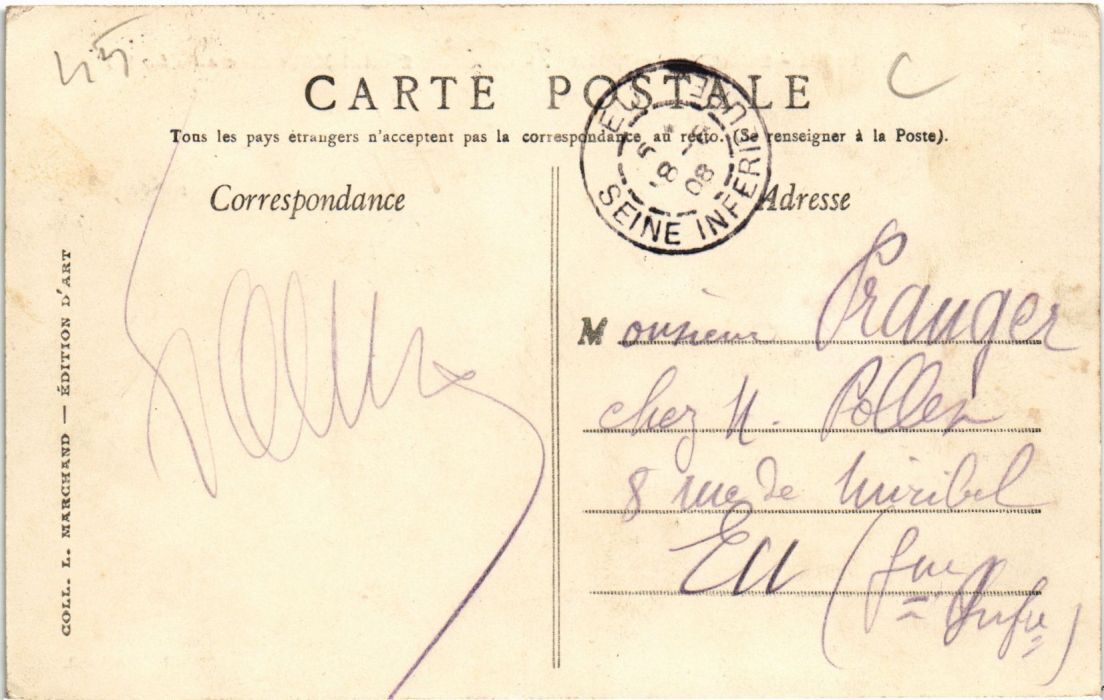 CARTE POSTALE
C
Tous les pays étrangers n'acceptent pas la correspondance au recto. (Se renseigner à la Poste).
EU
SEINE INFERIEURE
08
Correspondance
Adresse
COLL. L. MARCHAND — ÉDITION D'ART
Monsieur Pranger
chez M. Pollet
8 rue de Miribel
Eu (Sne Infre)